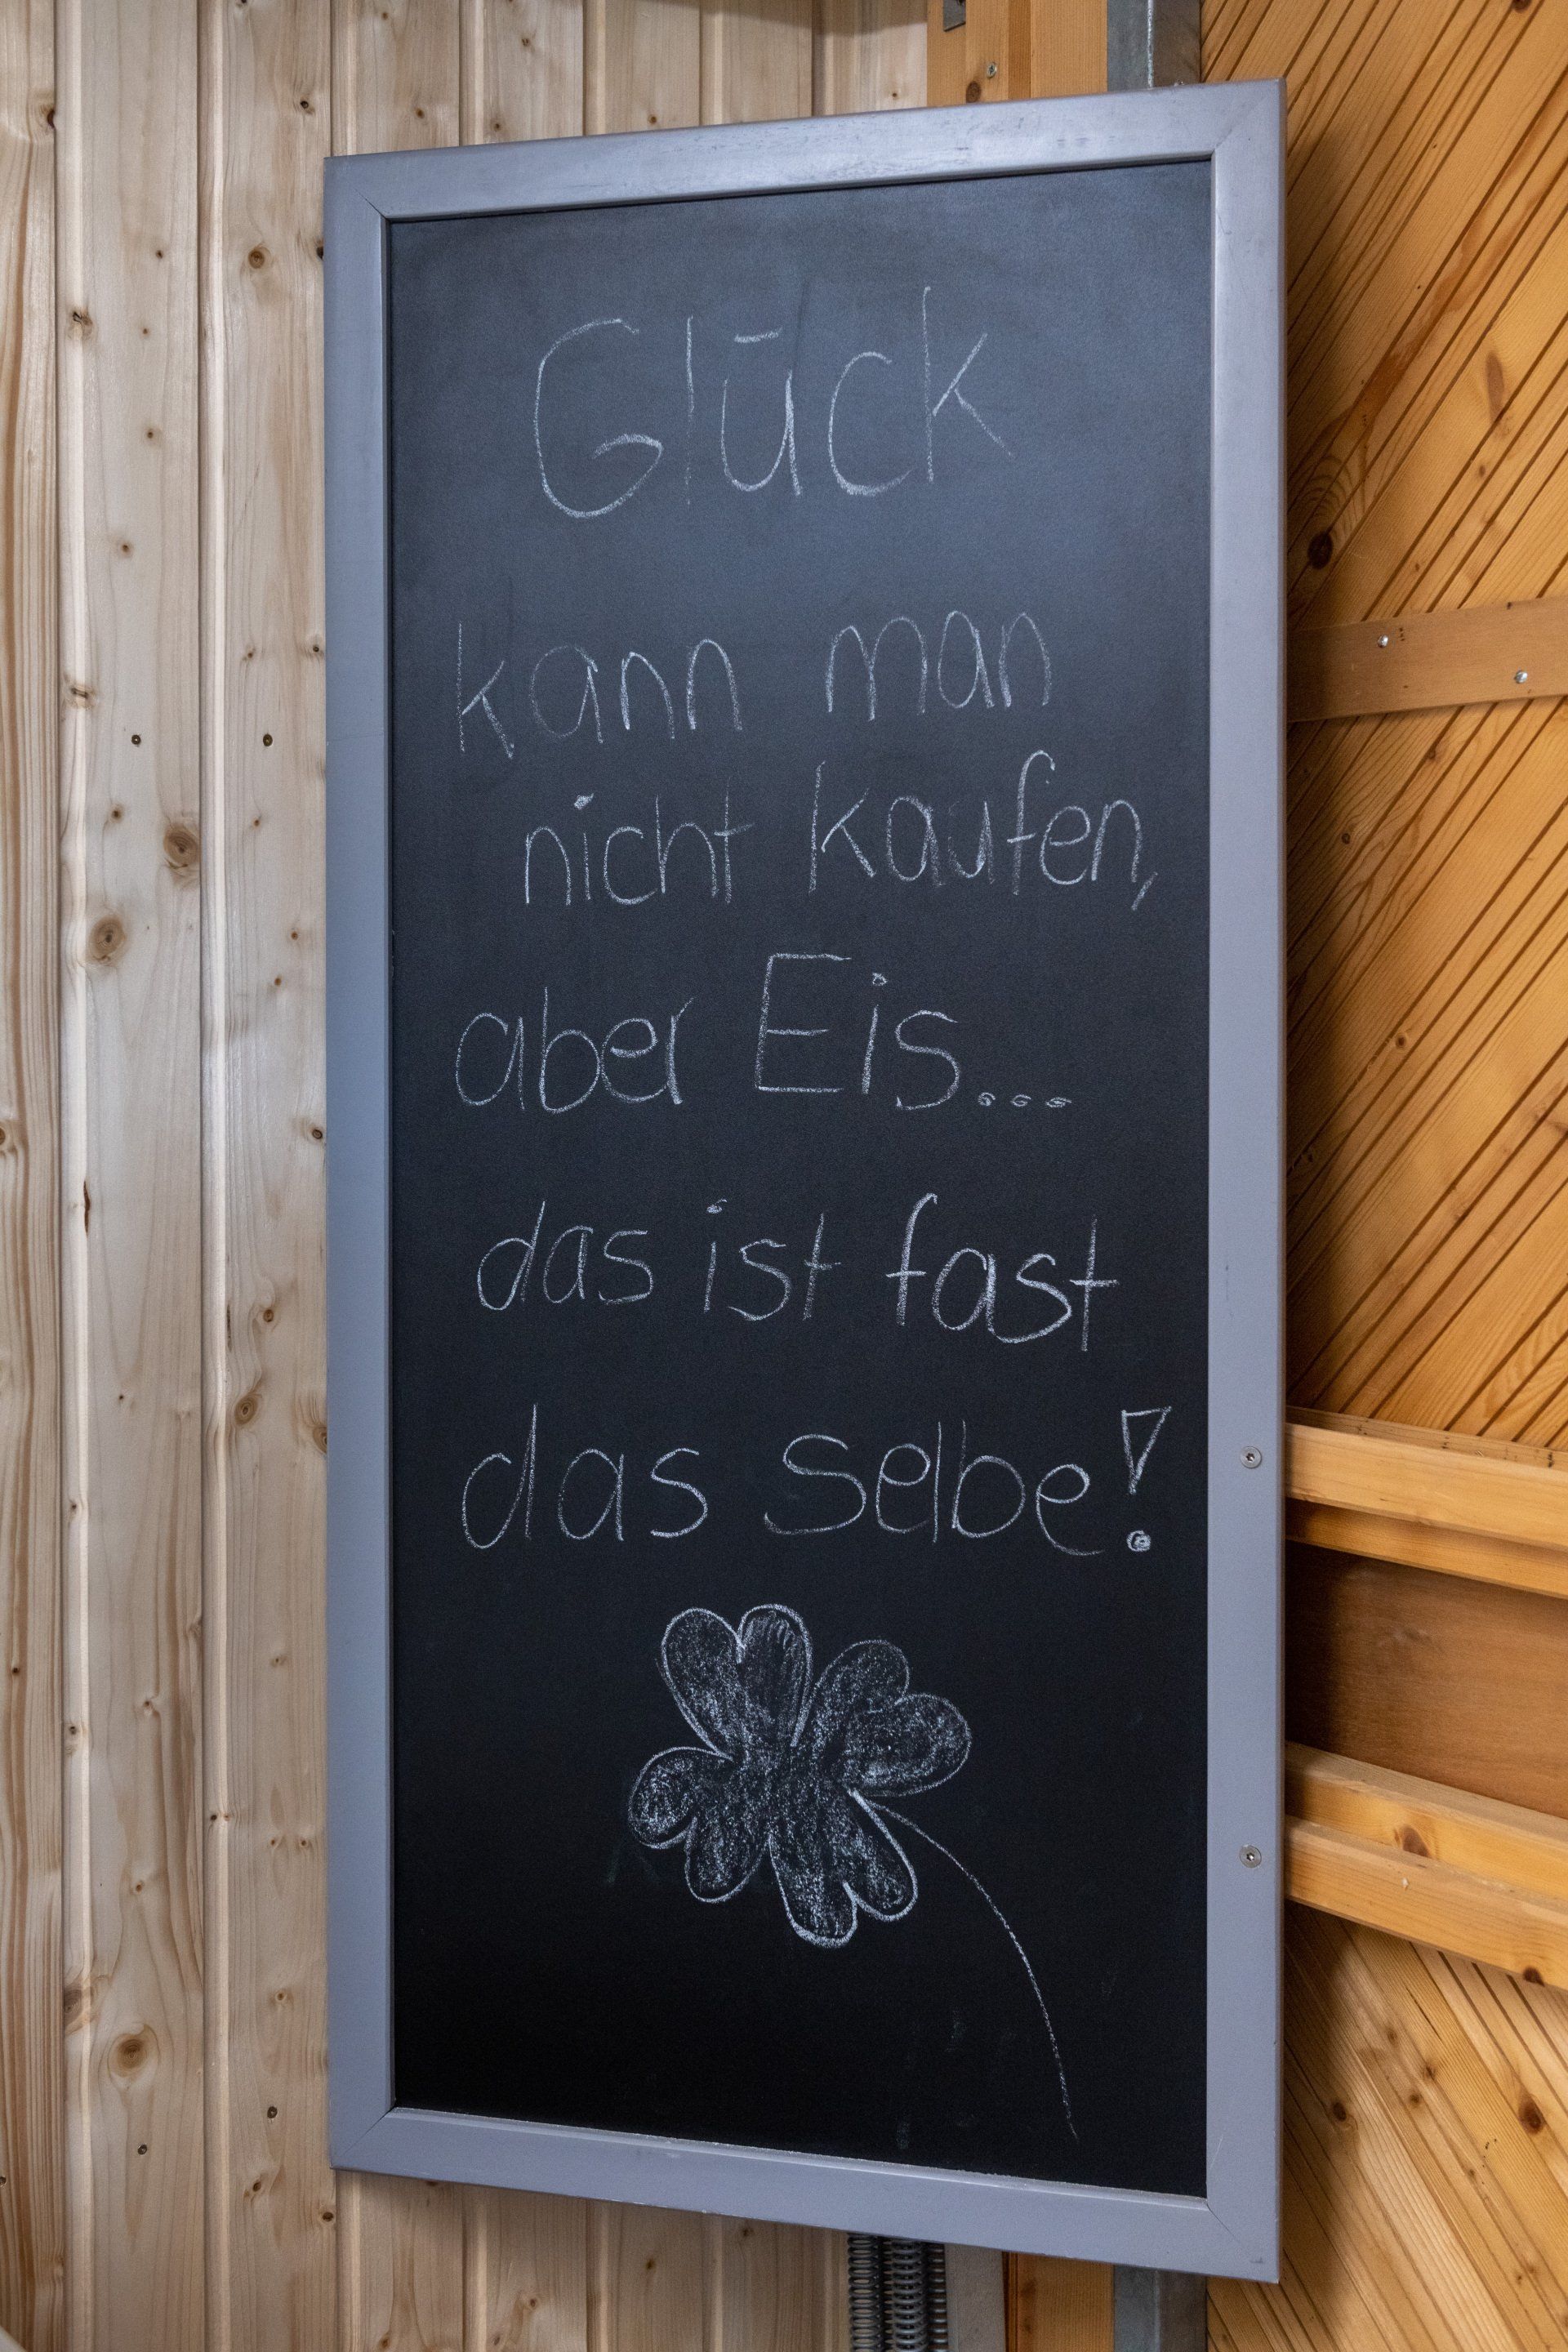 Glück
kann man
nicht kaufen,
aber Eis...
das ist fast
das selbe!